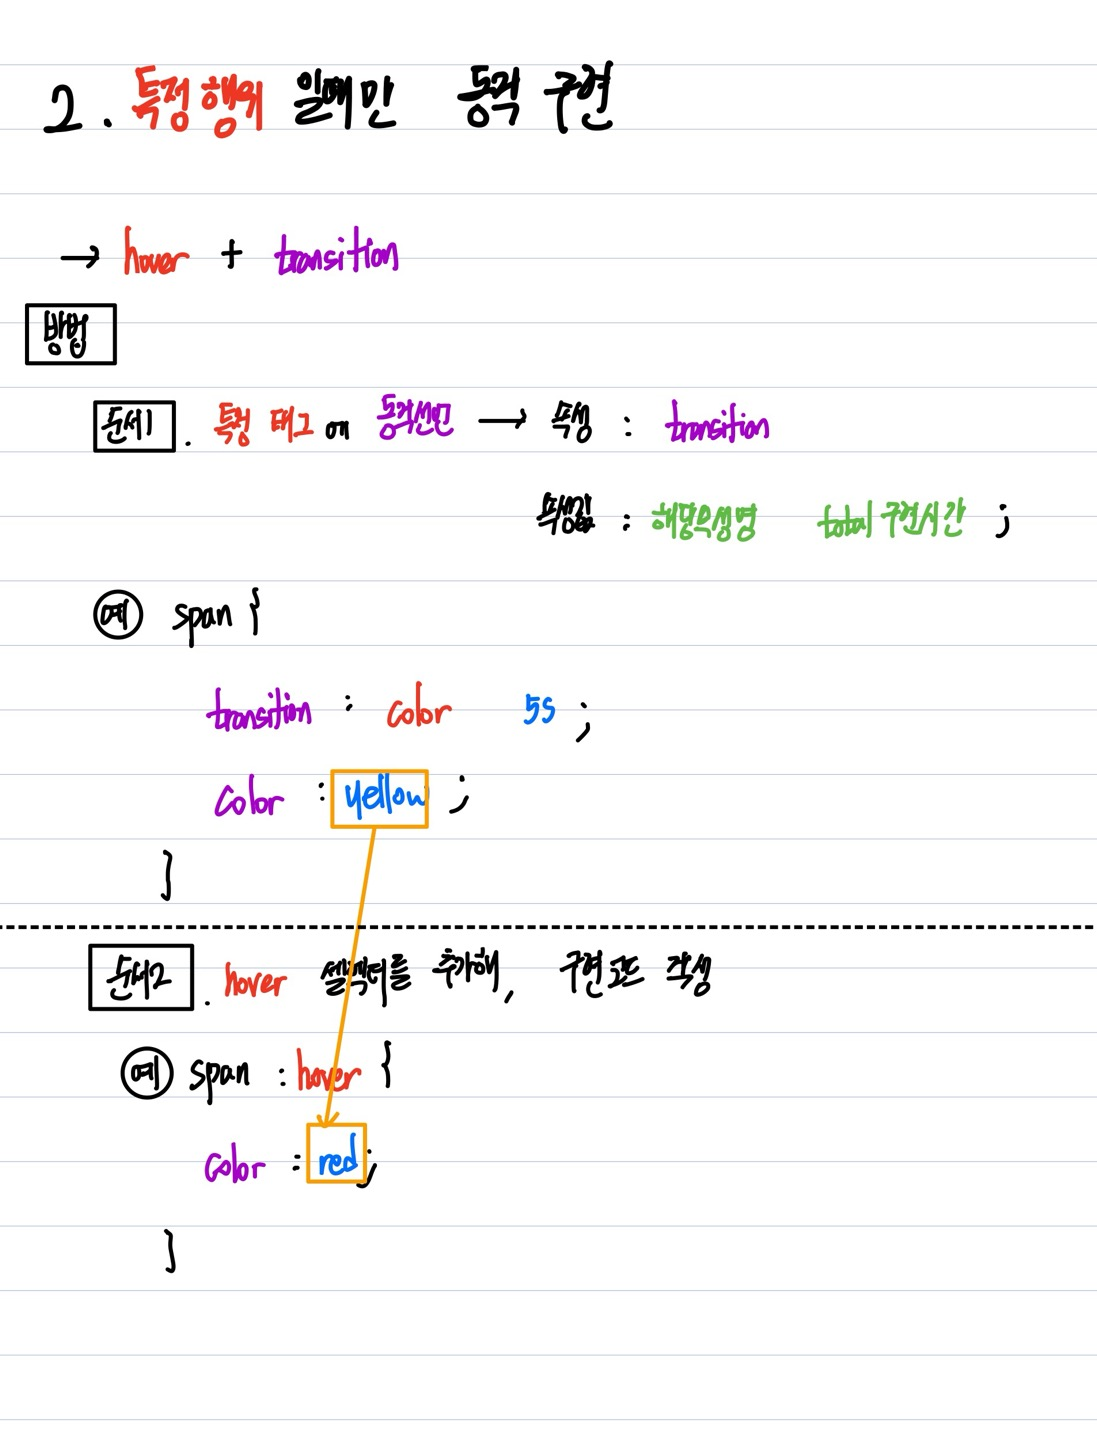 2. 특정행위 일때만 동작 구현
→ hover + transition
방법
순서1. 특정 태그에 동작선언 → 속성 : transition
속성값 : 해당속성명 total 구현시간 ;
예 span {
transition : color 5s ;
color : yellow ;
}
순서2. hover 셀렉터를 추가해, 구현코드 작성
예 span : hover {
color : red ;
}